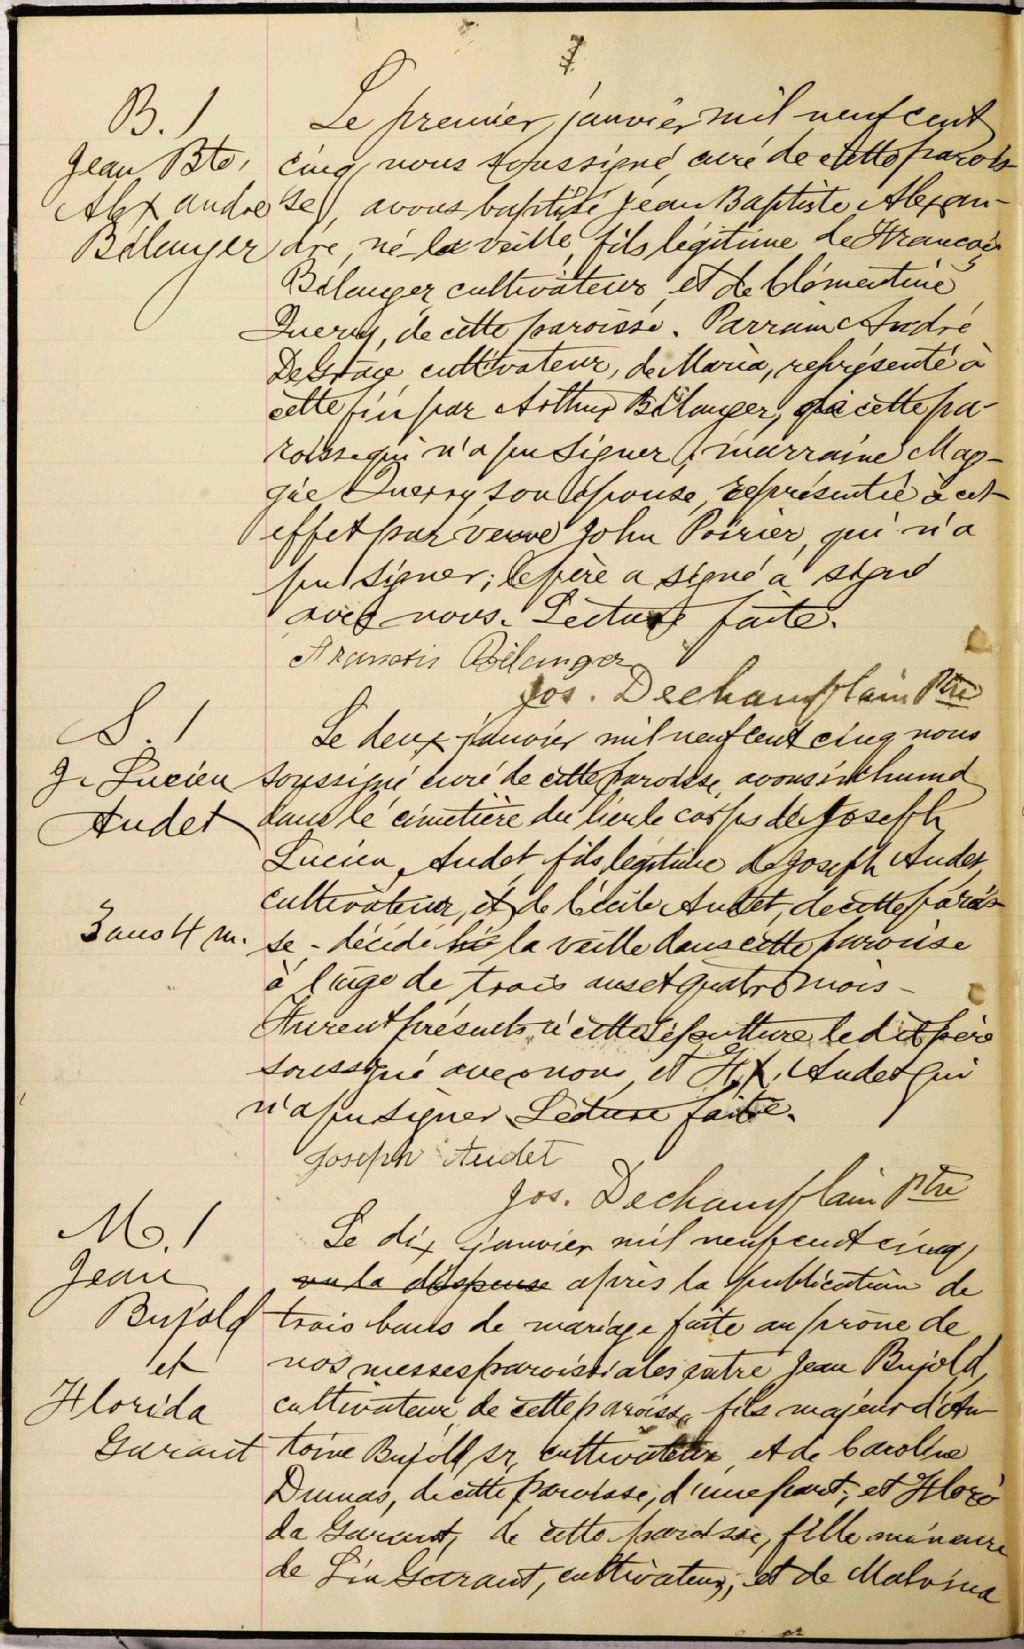 B. 1
Jean Bte.
Alexandre
Bélanger
Le premier janvier mil neuf cent
cinq, nous soussigné, curé de cette parois-
se, avons baptisé Jean Baptiste Alexan-
dre, né la veille, fils légitime de François
Bélanger cultivateur et de Clémentine
Querry, de cette paroisse. Parrain André
DeGrâce cultivateur, de Maria, représenté à
cette fin par Arthur Bélanger, de cette pa-
roisse qui n'a pu signer; marraine Mag-
gie Querry, son épouse, représentée à cet
effet par veuve John Poirier, qui n'a
pu signer; le père a signé a signé
avec nous. Lecture faite.
Francois Bélanger
Jos. Dechamplain Ptre
S. 1
J. Lucien
Audet
3 ans 4 m.
Le deux janvier mil neuf cent cinq nous
soussigné curé de cette paroisse, avons inhumé
dans le cimetière du lieu le corps de Joseph
Lucien Audet, fils légitime de Joseph Audet,
cultivateur, et de Cécile Audet, de cette parois-
se - décédé la veille dans cette paroisse
à l'âge de trois ans et quatre mois -
Furent présents à cette sépulture le dit père
soussigné avec nous, et F. X. Audet qui
n'a pu signer. Lecture faite.
Joseph Audet
Jos. Dechamplain Ptre
M. 1
Jean
Bujold
et
Florida
Garant
Le dix janvier mil neuf cent cinq,
vu la dispense après la publication de
trois bans de mariage faite au prône de
nos messes paroissiales entre Jean Bujold,
cultivateur de cette paroisse, fils majeur d'An-
toine Bujold sr, cultivateur, et de Caroline
Dumas, de cette paroisse, d'une part; et Flori-
da Garant, de cette paroisse, fille mineure
de Lin Garant, cultivateur, et de Malvina